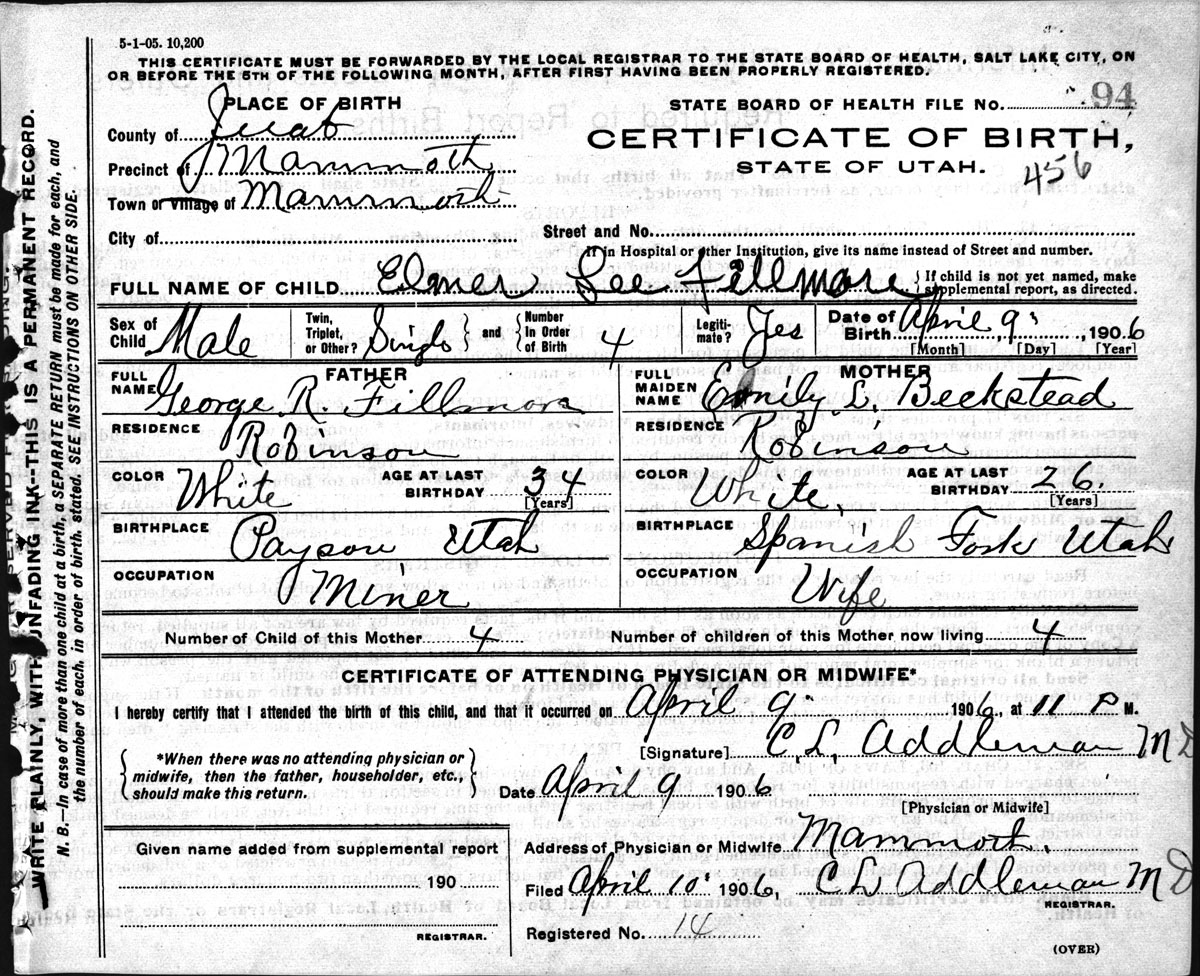 5-1-05. 10,200
THIS CERTIFICATE MUST BE FORWARDED BY THE LOCAL REGISTRAR TO THE STATE BOARD OF HEALTH, SALT LAKE CITY, ON
OR BEFORE THE 5TH OF THE FOLLOWING MONTH, AFTER FIRST HAVING BEEN PROPERLY REGISTERED.
PLACE OF BIRTH
STATE BOARD OF HEALTH FILE No. 94
County of Juab
CERTIFICATE OF BIRTH,
Precinct of Mammoth
STATE OF UTAH.
456
Town or Village of Mammoth
City of
Street and No.
If in Hospital or other Institution, give its name instead of Street and number.
FULL NAME OF CHILD Elmer Lee Fillmore
If child is not yet named, make
supplemental report, as directed.
Sex of Child Male
Twin, Triplet, or Other? Single and Number In Order of Birth 4
Legitimate? Yes
Date of Birth April 9, 1906
[Month] [Day] [Year]
FATHER
FULL NAME George R. Fillmore
RESIDENCE Robinson
COLOR White
AGE AT LAST BIRTHDAY 34
[Years]
BIRTHPLACE Payson Utah
OCCUPATION Miner
MOTHER
FULL MAIDEN NAME Emily L. Beckstead
RESIDENCE Robinson
COLOR White
AGE AT LAST BIRTHDAY 26.
[Years]
BIRTHPLACE Spanish Fork Utah
OCCUPATION Wife
Number of Child of this Mother 4
Number of children of this Mother now living 4
CERTIFICATE OF ATTENDING PHYSICIAN OR MIDWIFE*
I hereby certify that I attended the birth of this child, and that it occurred on April 9 1906, at 11 P M.
*When there was no attending physician or
midwife, then the father, householder, etc.,
should make this return.
[Signature] C. L. Addleman MD
Date April 9 1906
[Physician or Midwife]
Address of Physician or Midwife Mammoth.
Filed April 10. 1906, C L Addleman MD
REGISTRAR.
Registered No. 14
Given name added from supplemental report
190
REGISTRAR.
(OVER)
WRITE PLAINLY, WITH UNFADING INK--THIS IS A PERMANENT RECORD.
N. B.—In case of more than one child at a birth, a SEPARATE RETURN must be made for each, and
the number of each, in order of birth, stated. SEE INSTRUCTIONS ON OTHER SIDE.